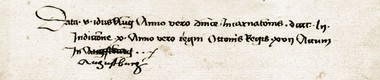 Data v idus Aug Anno vero dnice Incarnationis . dccc . ln
Indictione x Anno vero regni Ottonis Regis xvii Actum
In
Augustburg